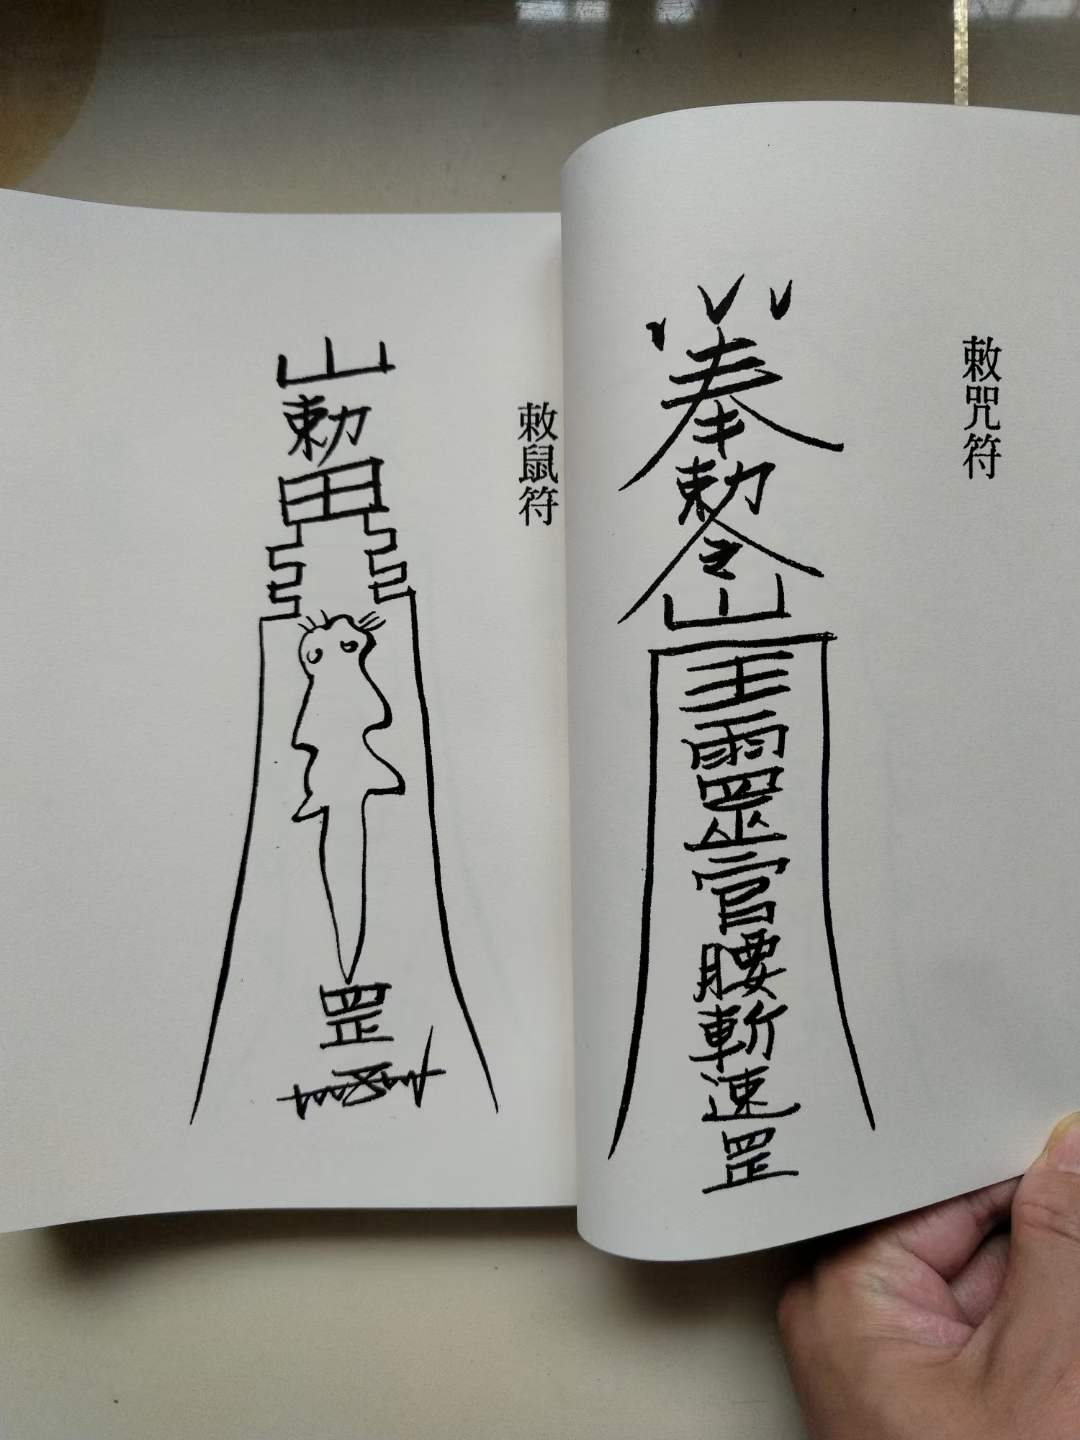 敕咒符
奉勅令山王靈官腰斬速罡
敕鼠符
山勅田罡